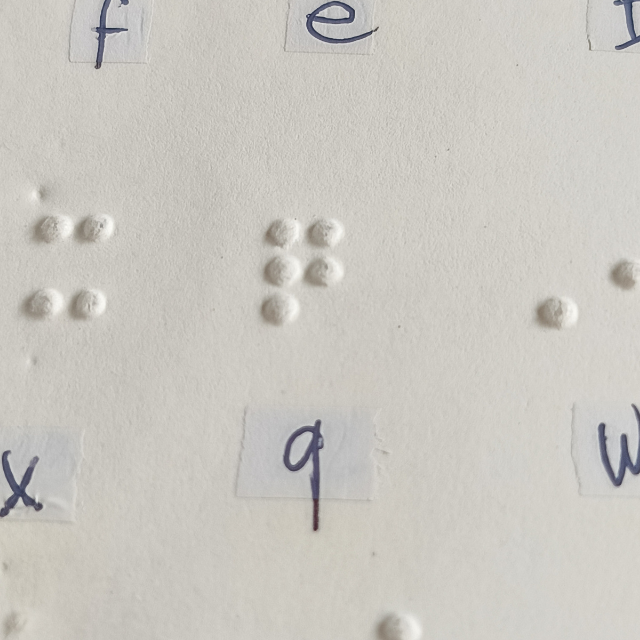 f e
⠭ ⠟
x q w